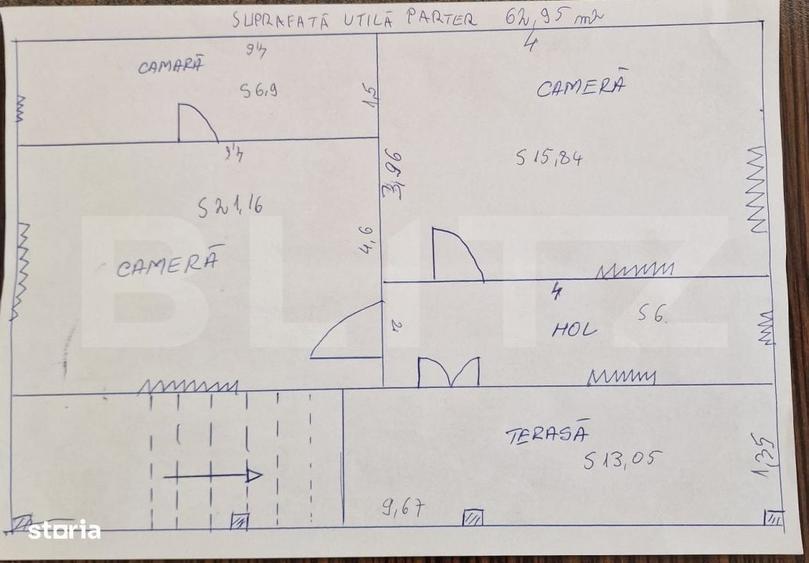 SUPRAFATĂ UTILĂ PARTER 62,95 m2
4,6
4
CAMARĂ
S 6,9
1,5
CAMERĂ
4,6
3,96
S 15,84
S 21,16
4,6
CAMERĂ
BLITZ
4
2
HOL
S 6.
TERASĂ
S 13,05
1,35
9,67
storia